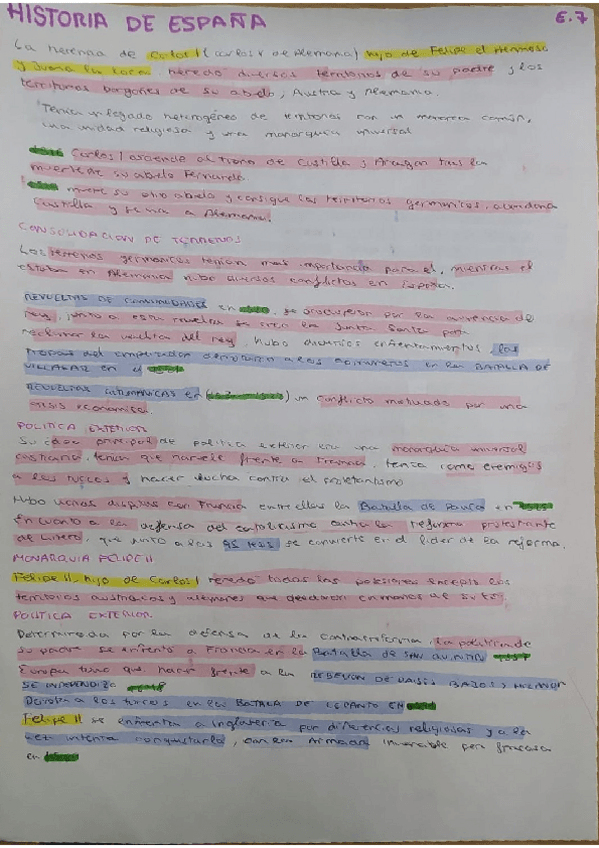 HISTORIA DE ESPAÑA E.7
La herencia de Carlos I (Carlos V de Alemania) hijo de Felipe el Hermoso
y Juana la Loca heredo diversos territorios de su padre y los
territorios borgoñes de su abuelo, Austria y Alemania.
Tenia un legado heterogéneo de territorios con un monarca común,
una unidad religiosa y una monarquia universal
Carlos I asciende al trono de Castilla y Aragon tras la
muerte de su abuelo Fernando.
muere su otro abuelo y consigue los territorios germanicos, abandona
Castilla y a Alemania.
CONSOLIDACION DE TERRENOS
Los terrenos germanicos tenian mas importancia para el, mientras el
estaba en Alemania hubo diversos conflictos en España.
REVUELTAS DE COMUNIDADES en se por la ausencia de
rey, junto a esta revuelta se creo la Junta Santa para
la vuelta del rey. Hubo diversos enfrentamientos, las
tropas del emperador a los comuneros en la BATALLA DE
VILLALAR en el
REVUELTAS en ( ) un conflicto motivado por una
crisis economica.
POLITICA EXTERIOR
Su idea principal de politica exterior era una monarquia universal
cristiana, tenia que hacerle frente a Francia, tenia como enemigos
a los turcos y hacer lucha contra el protestantismo
Hubo varias disputas con Francia entre ellas la Batalla de Pavia en
En cuanto a la defensa del catolicismo contra la reforma protestante
de Lutero, que junto a las 95 tesis se convierte en el lider de la reforma.
MONARQUIA FELIPE II
Felipe II, hijo de Carlos I heredo todas las posesiones excepto los
territorios austriacos y alemanes que quedaron en manos de
POLITICA EXTERIOR.
Determinada por la defensa de la contrarreforma, la politica de
su padre se enfrentó a Francia en la Batalla de SAN QUINTIN
Europa tuvo que hacer frente a la REBELION DE PAISES BAJOS y
SE INDEPENDIZA
Derrota a los turcos en la BATALLA DE LEPANTO EN
Felipe II se enfrenta a Inglaterra por diferencias religiosas y a la
vez intenta conquistarla, con la Armada invencible pero fracasa
en